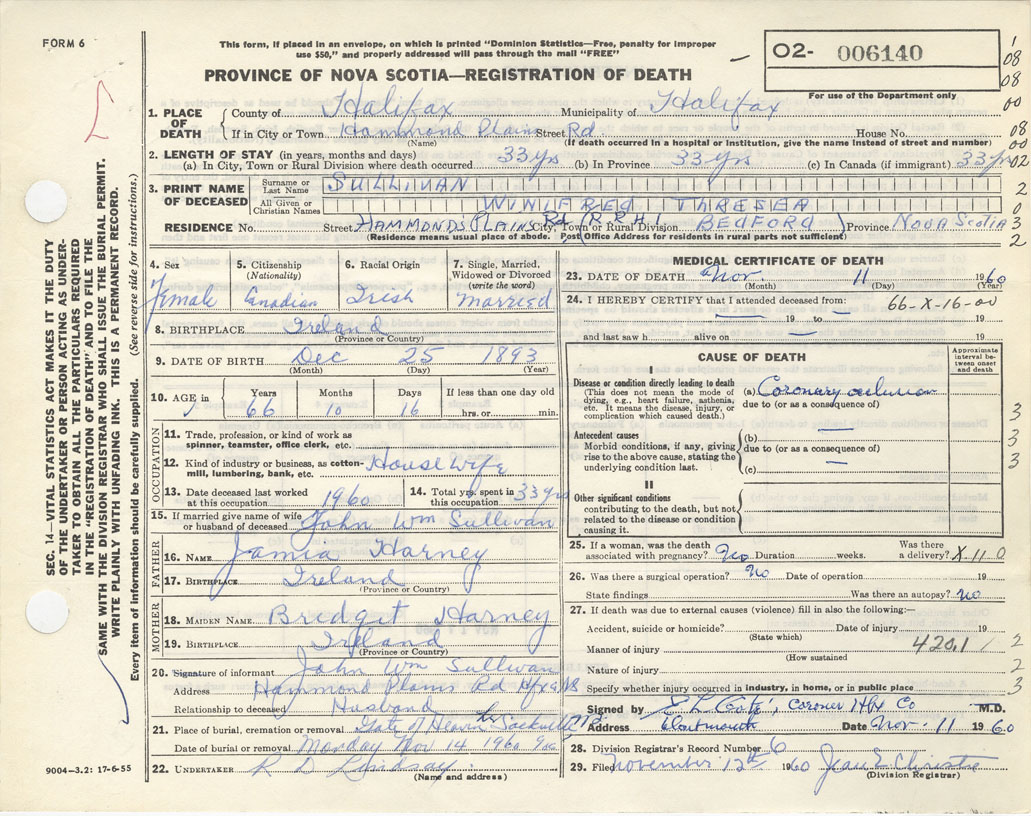 FORM 6
This form, if placed in an envelope, on which is printed "Dominion Statistics—Free, penalty for improper
use $50," and properly addressed will pass through the mail "FREE"
PROVINCE OF NOVA SCOTIA—REGISTRATION OF DEATH
O2- 006140
For use of the Department only
1
08
08
00
1. PLACE OF DEATH
County of Halifax Municipality of Halifax
If in City or Town Hammond Plains Street Rd. House No.
(Name) (If death occurred in a hospital or institution, give the name instead of street and number)
08
00
2. LENGTH OF STAY (in years, months and days)
(a) In City, Town or Rural Division where death occurred 33 yrs (b) In Province 33 yrs (c) In Canada (if immigrant) 33 yrs
02
3. PRINT NAME OF DECEASED
Surname or Last Name SULLIVAN
All Given or Christian Names WINIFRED THRESEA
2
0
RESIDENCE No. Street HAMMONDS PLAINS Rd. City, Town or Rural Division (R.R.#1 BEDFORD) Province NOVA SCOTIA
(Residence means usual place of abode. Post Office Address for residents in rural parts not sufficient)
3
2
4. Sex
Female
5. Citizenship
(Nationality)
Canadian
6. Racial Origin
Irish
7. Single, Married,
Widowed or Divorced
(write the word)
Married
8. BIRTHPLACE Ireland
(Province or Country)
9. DATE OF BIRTH Dec 25 1893
(Month) (Day) (Year)
10. AGE in
Years Months Days If less than one day old
66 10 16 hrs. or min.
OCCUPATION
11. Trade, profession, or kind of work as
spinner, teamster, office clerk, etc.
12. Kind of industry or business, as cotton-
mill, lumbering, bank, etc.
House wife
13. Date deceased last worked
at this occupation 1960
14. Total yrs. spent in
this occupation. 33 yrs
15. If married give name of wife
or husband of deceased John Wm Sullivan
FATHER
16. NAME Harney
17. BIRTHPLACE Ireland
(Province or Country)
MOTHER
18. MAIDEN NAME Bridgit Harney
19. BIRTHPLACE Ireland
(Province or Country)
20. Signature of informant John Wm Sullivan
Address Hammond Plains Rd Hfx NS
Relationship to deceased Husband
21. Place of burial, cremation or removal Gate of Heaven
Date of burial or removal Monday Nov 14 1960
22. UNDERTAKER R D Lindsay
(Name and address)
MEDICAL CERTIFICATE OF DEATH
23. DATE OF DEATH Nov 11 1960
(Month) (Day) (Year)
24. I HEREBY CERTIFY that I attended deceased from: 66-X-16-00
19 to 19
and last saw h alive on 19
CAUSE OF DEATH
Approximate
interval be-
tween onset
and death
I
Disease or condition directly leading to death
(This does not mean the mode of
dying, e.g., heart failure, asthenia,
etc. It means the disease, injury, or
complication which caused death.)
(a) Coronary occlusion
due to (or as a consequence of)
3
Antecedent causes
Morbid conditions, if any, giving
rise to the above cause, stating the
underlying condition last.
(b)
due to (or as a consequence of)
(c)
3
3
3
II
Other significant conditions
contributing to the death, but not
related to the disease or condition
causing it.
25. If a woman, was the death
associated with pregnancy? No Duration weeks. Was there
a delivery? X-11-0
26. Was there a surgical operation? No Date of operation 19
State findings Was there an autopsy? No
27. If death was due to external causes (violence) fill in also the following:—
Accident, suicide or homicide? Date of injury 19
(State which)
Manner of injury 420.1
(How sustained
2
Nature of injury
2
Specify whether injury occurred in industry, in home, or in public place
3
Signed by Coroner Hfx Co M.D.
Address Dartmouth Date Nov. 11 1960
28. Division Registrar's Record Number 6
29. Filed November 12th 1960 Jean E Christie
(Division Registrar)
SEC. 14—VITAL STATISTICS ACT MAKES IT THE DUTY
OF THE UNDERTAKER OR PERSON ACTING AS UNDER-
TAKER TO OBTAIN ALL THE PARTICULARS REQUIRED
IN THE "REGISTRATION OF DEATH" AND TO FILE THE
SAME WITH THE DIVISION REGISTRAR WHO SHALL ISSUE THE BURIAL PERMIT.
WRITE PLAINLY WITH UNFADING INK. THIS IS A PERMANENT RECORD.
Every item of information should be carefully supplied. (See reverse side for instructions.)
9004—3.2: 17-6-55